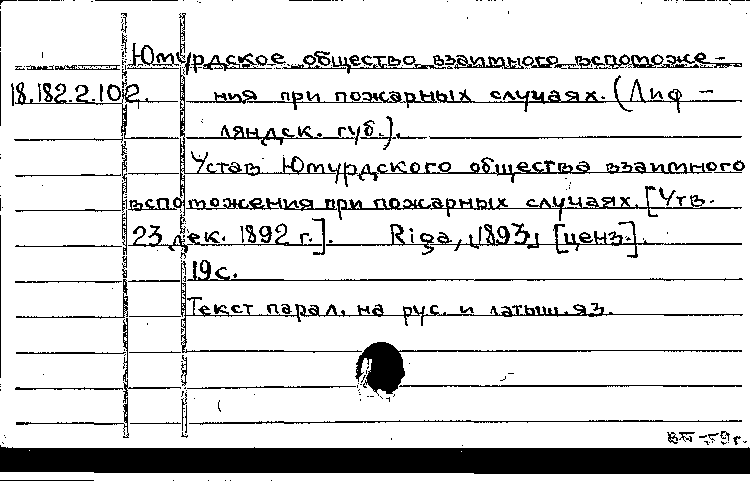 Юмурдское общество взаимного вспоможе-
18.182.2.102. ния при пожарных случаях. (Лиф-
ляндск. губ.).
Устав Юмурдского общества взаимного
вспоможения при пожарных случаях. [Утв.
23 дек. 1892 г.]. Riga, 1893 [ценз.].
19 с.
Текст парал. на рус. и латыш. яз.